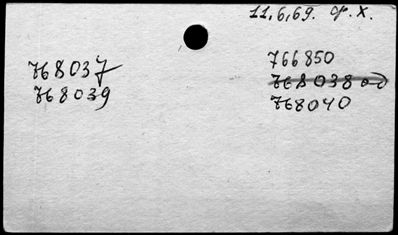 11,6,69. J. X.
768037
768039
766850
768038
768040